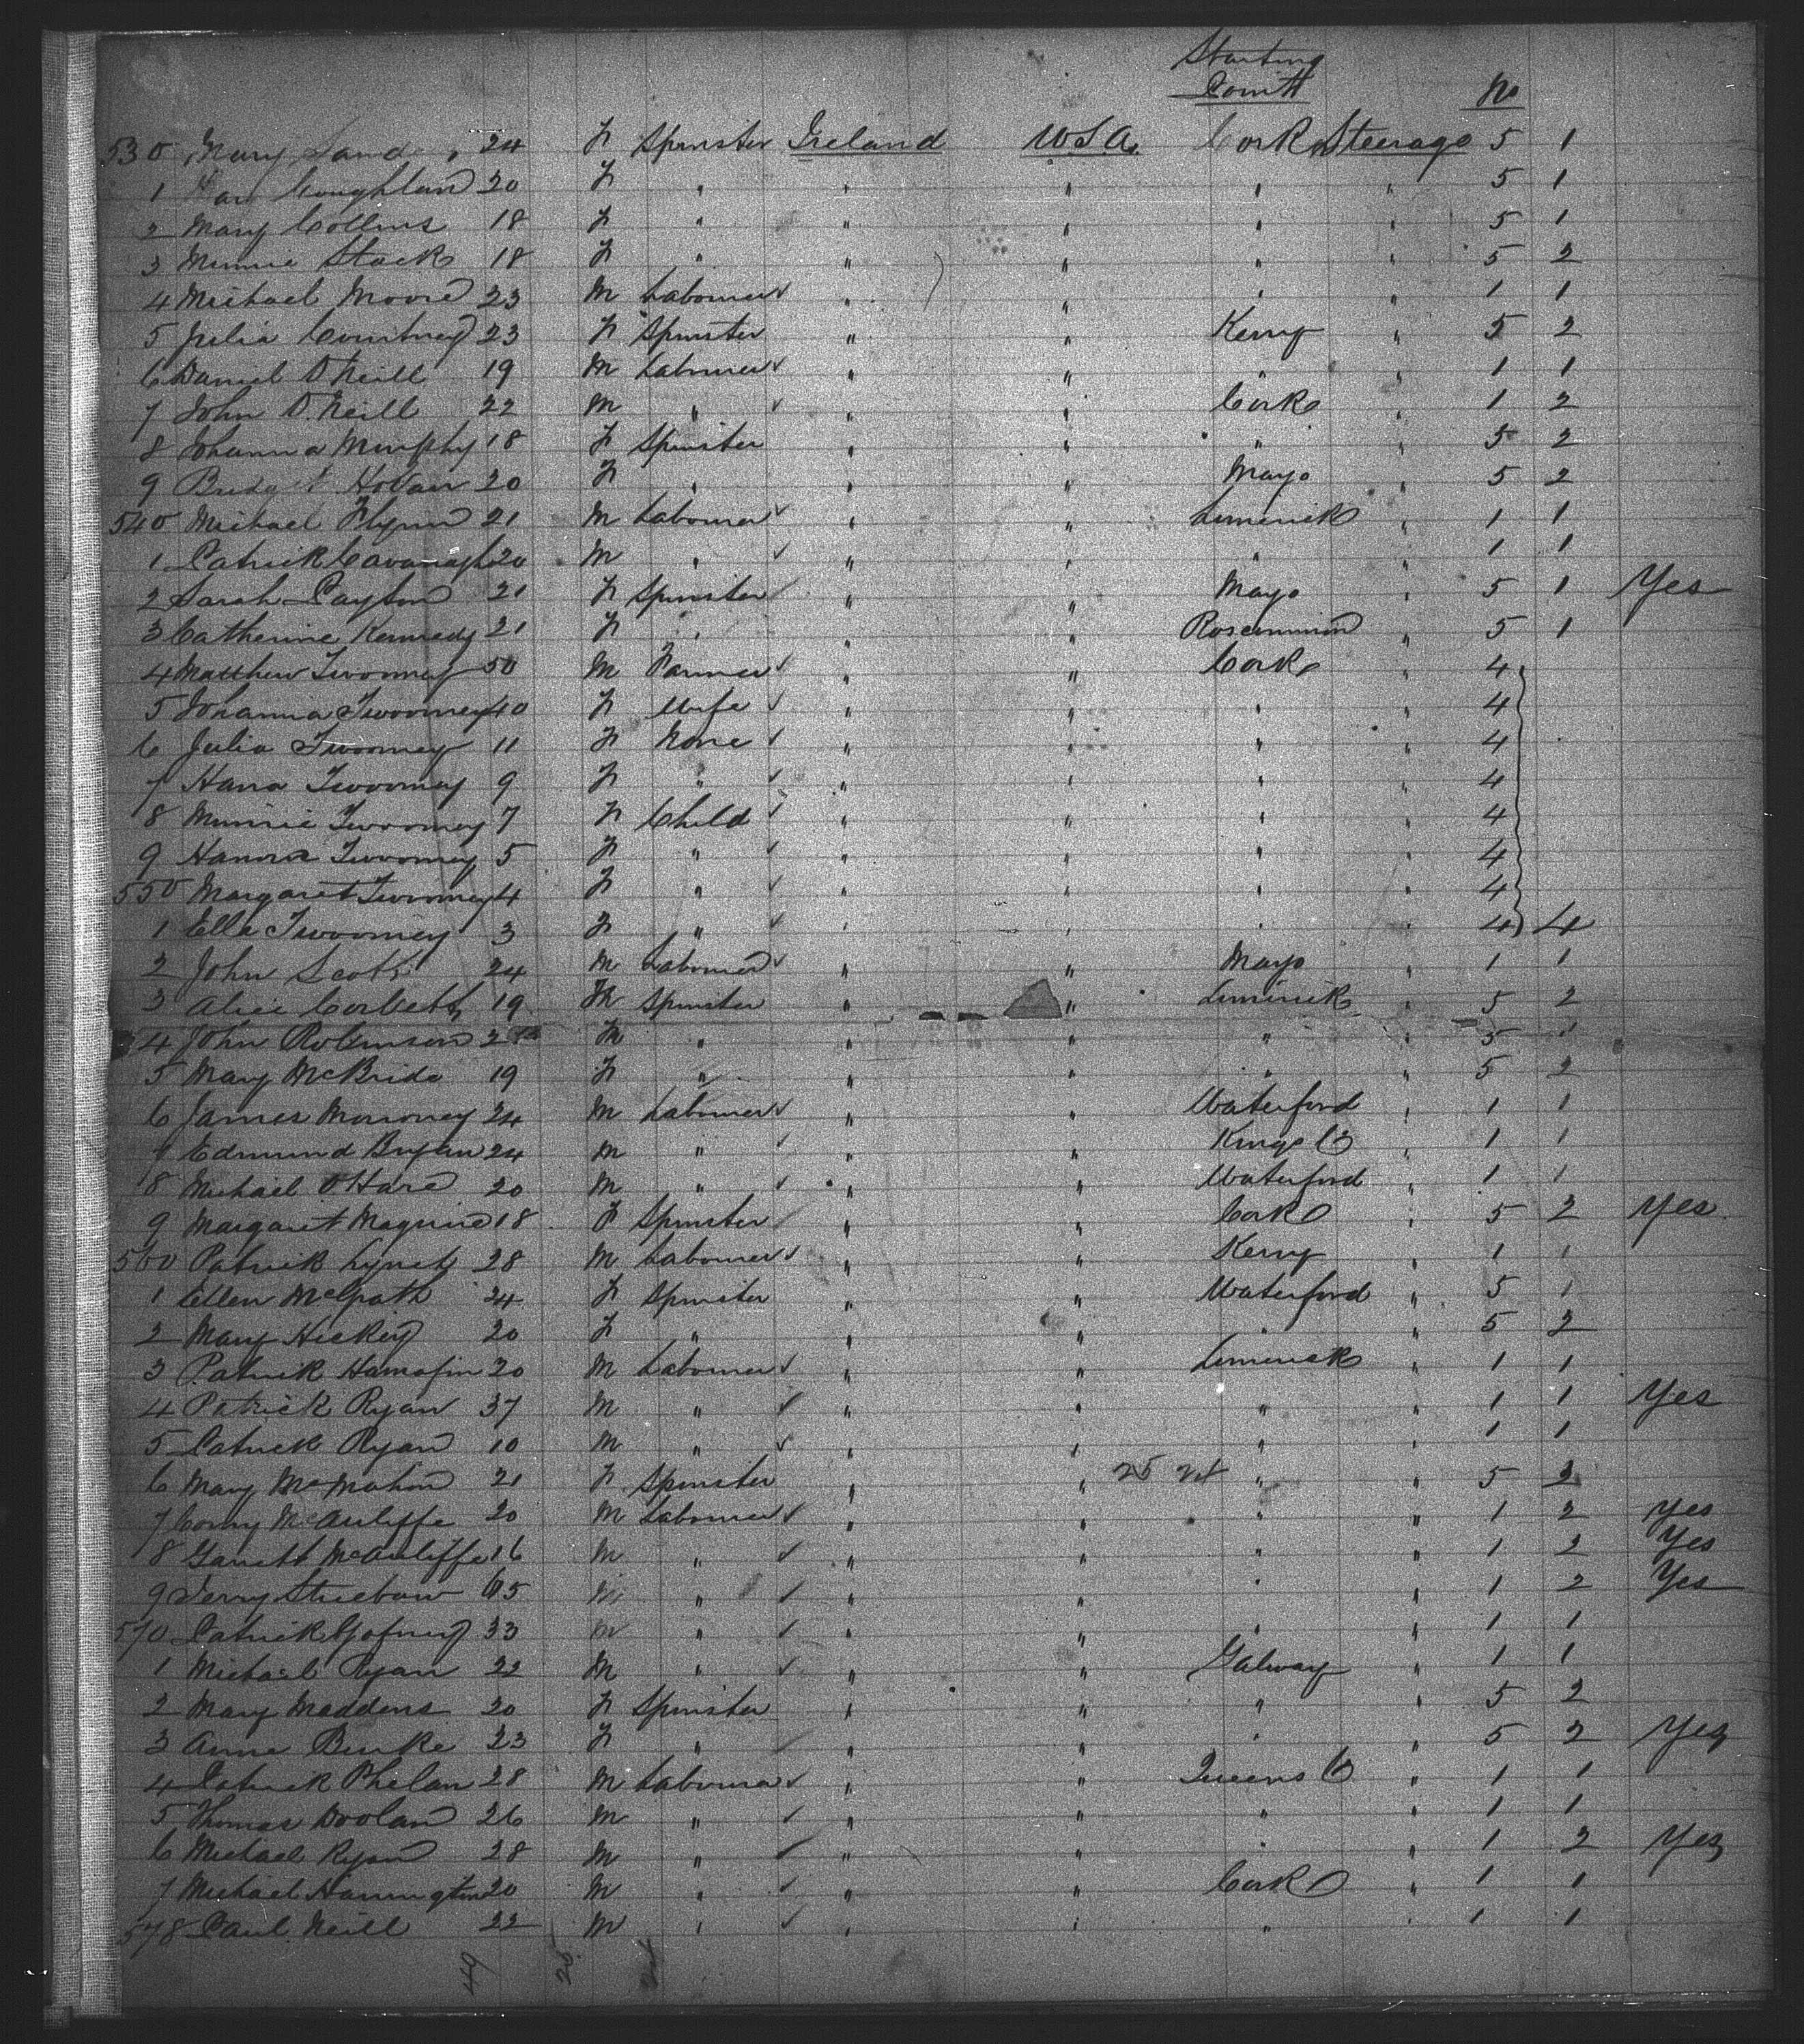 Starting
Point No
530 Mary 24 F Spinster Ireland U.S.A. Cork Steerage 5 1
1 Coughlan 20 F " " " " " 5 1
2 Mary Collins 18 F " " " " " 5 1
3 Minnie Stack 18 F " " " " " 5 2
4 Michael Moore 23 M Labourer " " " " 1 1
5 Julia Courtney 23 F Spinster " " Kerry " 5 2
6 Daniel O Neill 19 M Labourer " " " " 1 1
7 John O. Neill 22 M " " " Cork " 1 2
8 Johanna Murphy 18 F Spinster " " " " 5 2
9 Bridget Hoban 20 F " " " Mayo " 5 2
540 Michael Flynn 21 M Labourer " " Limerick " 1 1
1 Patrick Cavanagh 20 M " " " " " 1 1
2 Sarah Payton 21 F Spinster " " Mayo " 5 1 Yes
3 Catherine Kennedy 21 F " " " Roscommon " 5 1
4 Matthew Twoomey 50 M Farmer " " Cork " 4
5 Johanna Twoomey 40 F Wife " " " " 4
6 Julia Twoomey 11 F None " " " " 4
7 Hana Twoomey 9 F " " " " " 4
8 Minnie Twoomey 7 F Child " " " " 4
9 Hanora Twoomey 5 F " " " " " 4
550 Margaret Twoomey 4 F " " " " " 4
1 Ella Twoomey 3 F " " " " " 4 4
2 John Scott 24 M Labourer " " Mayo " 1 1
3 Alice Corbett 19 F Spinster " " Limerick " 5 2
4 John Robinson M " " " " " 5 1
5 Mary McBride 19 F " " " " " 5 2
6 James Moroney 24 M Labourer " " Waterford " 1 1
7 Edmund Bryan 24 M " " " Kings Co " 1 1
8 Michael O Hare 20 M " " " Waterford " 1 1
9 Margaret Maguire 18 F Spinster " " Cork " 5 2 Yes
560 Patrick Lynch 28 M Labourer " " Kerry " 1 1
1 Ellen McGrath 24 F Spinster " " Waterford " 5 1
2 Mary Hickey 20 F " " " " " 5 2
3 Patrick Hanafin 20 M Labourer " " Limerick " 1 1
4 Patrick Ryan 37 M " " " " " 1 1 Yes
5 Patrick Ryan 10 M " " " " " 1 1
6 Mary McMahon 21 F Spinster " " 25 " " 5 2
7 Corny McAuliffe 20 M Labourer " " " " 1 2 Yes
8 Garrett McAuliffe 16 M " " " " " 1 2 Yes
9 Jerry 65 M " " " " " 1 2 Yes
570 Patrick 33 M " " " " " 1 1
1 Michael Ryan 22 M " " " Galway " 1 1
2 Mary Maddens 20 F Spinster " " " " 5 2
3 Anne Burke 23 F " " " " " 5 2 Yes
4 Patrick Phelan 28 M Labourer " " Queens Co " 1 1
5 Thomas Doolan 26 M " " " " " 1 1
6 Michael Ryan 28 M " " " " " 1 2 Yes
7 Michael Harrington 20 M " " " Cork " 1 1
578 Paul Neill 22 M " " " " " 1 1